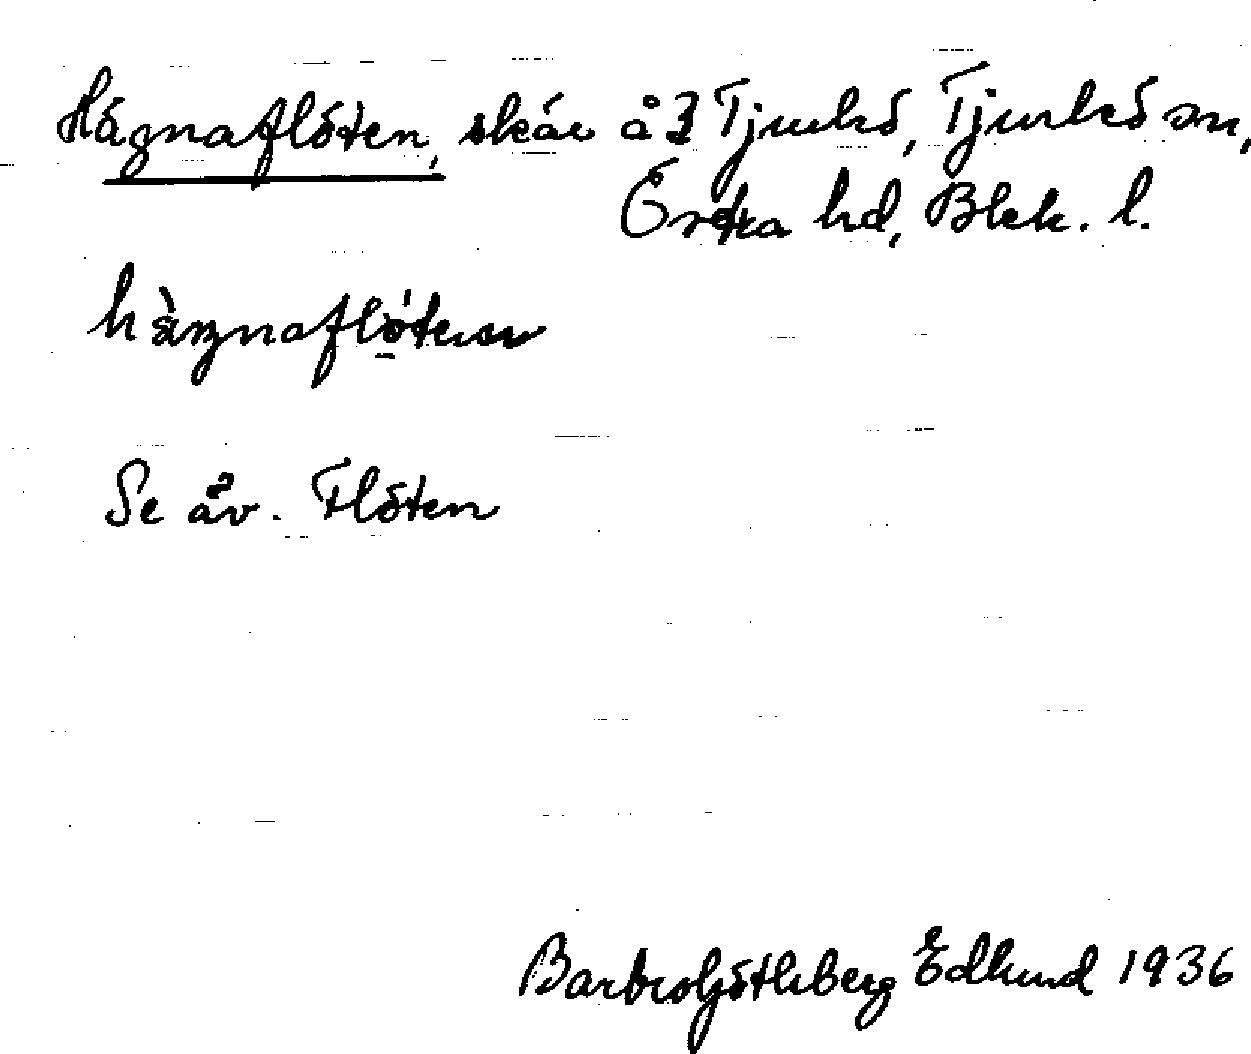 Hågnaflöten, skär å 3 Tjurkö, Tjurkö sn,
Östra hd, Blek. l.
Se äv. Flöten
Barbro Götlberg Edlund 1936